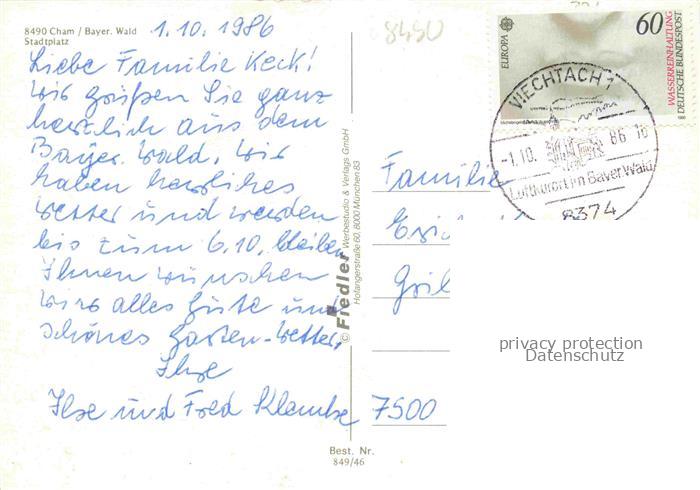 8490 Cham / Bayer. Wald
Stadtplatz
1.10.1986
Liebe Familie Keck!
Wir grüßen Sie ganz
herzlich aus dem
Bayer. Wald, Wir
haben herrliches
Wetter und werden
bis zum 6.10. bleiben
Ihnen wünschen
wir alles Gute und
schönes Garten-Wetter,
Ihre
Ilse und Fred
© Fiedler Werbestudio & Verlags GmbH
Hofangerstraße 60, 8000 München 83
Best. Nr.
849/46
8490
EUROPA
60
WASSERREINHALTUNG
DEUTSCHE BUNDESPOST
VIECHTACH 1
-1.10.86-16
Luftkurort im Bayer. Wald
8374
Familie
7500
privacy protection
Datenschutz